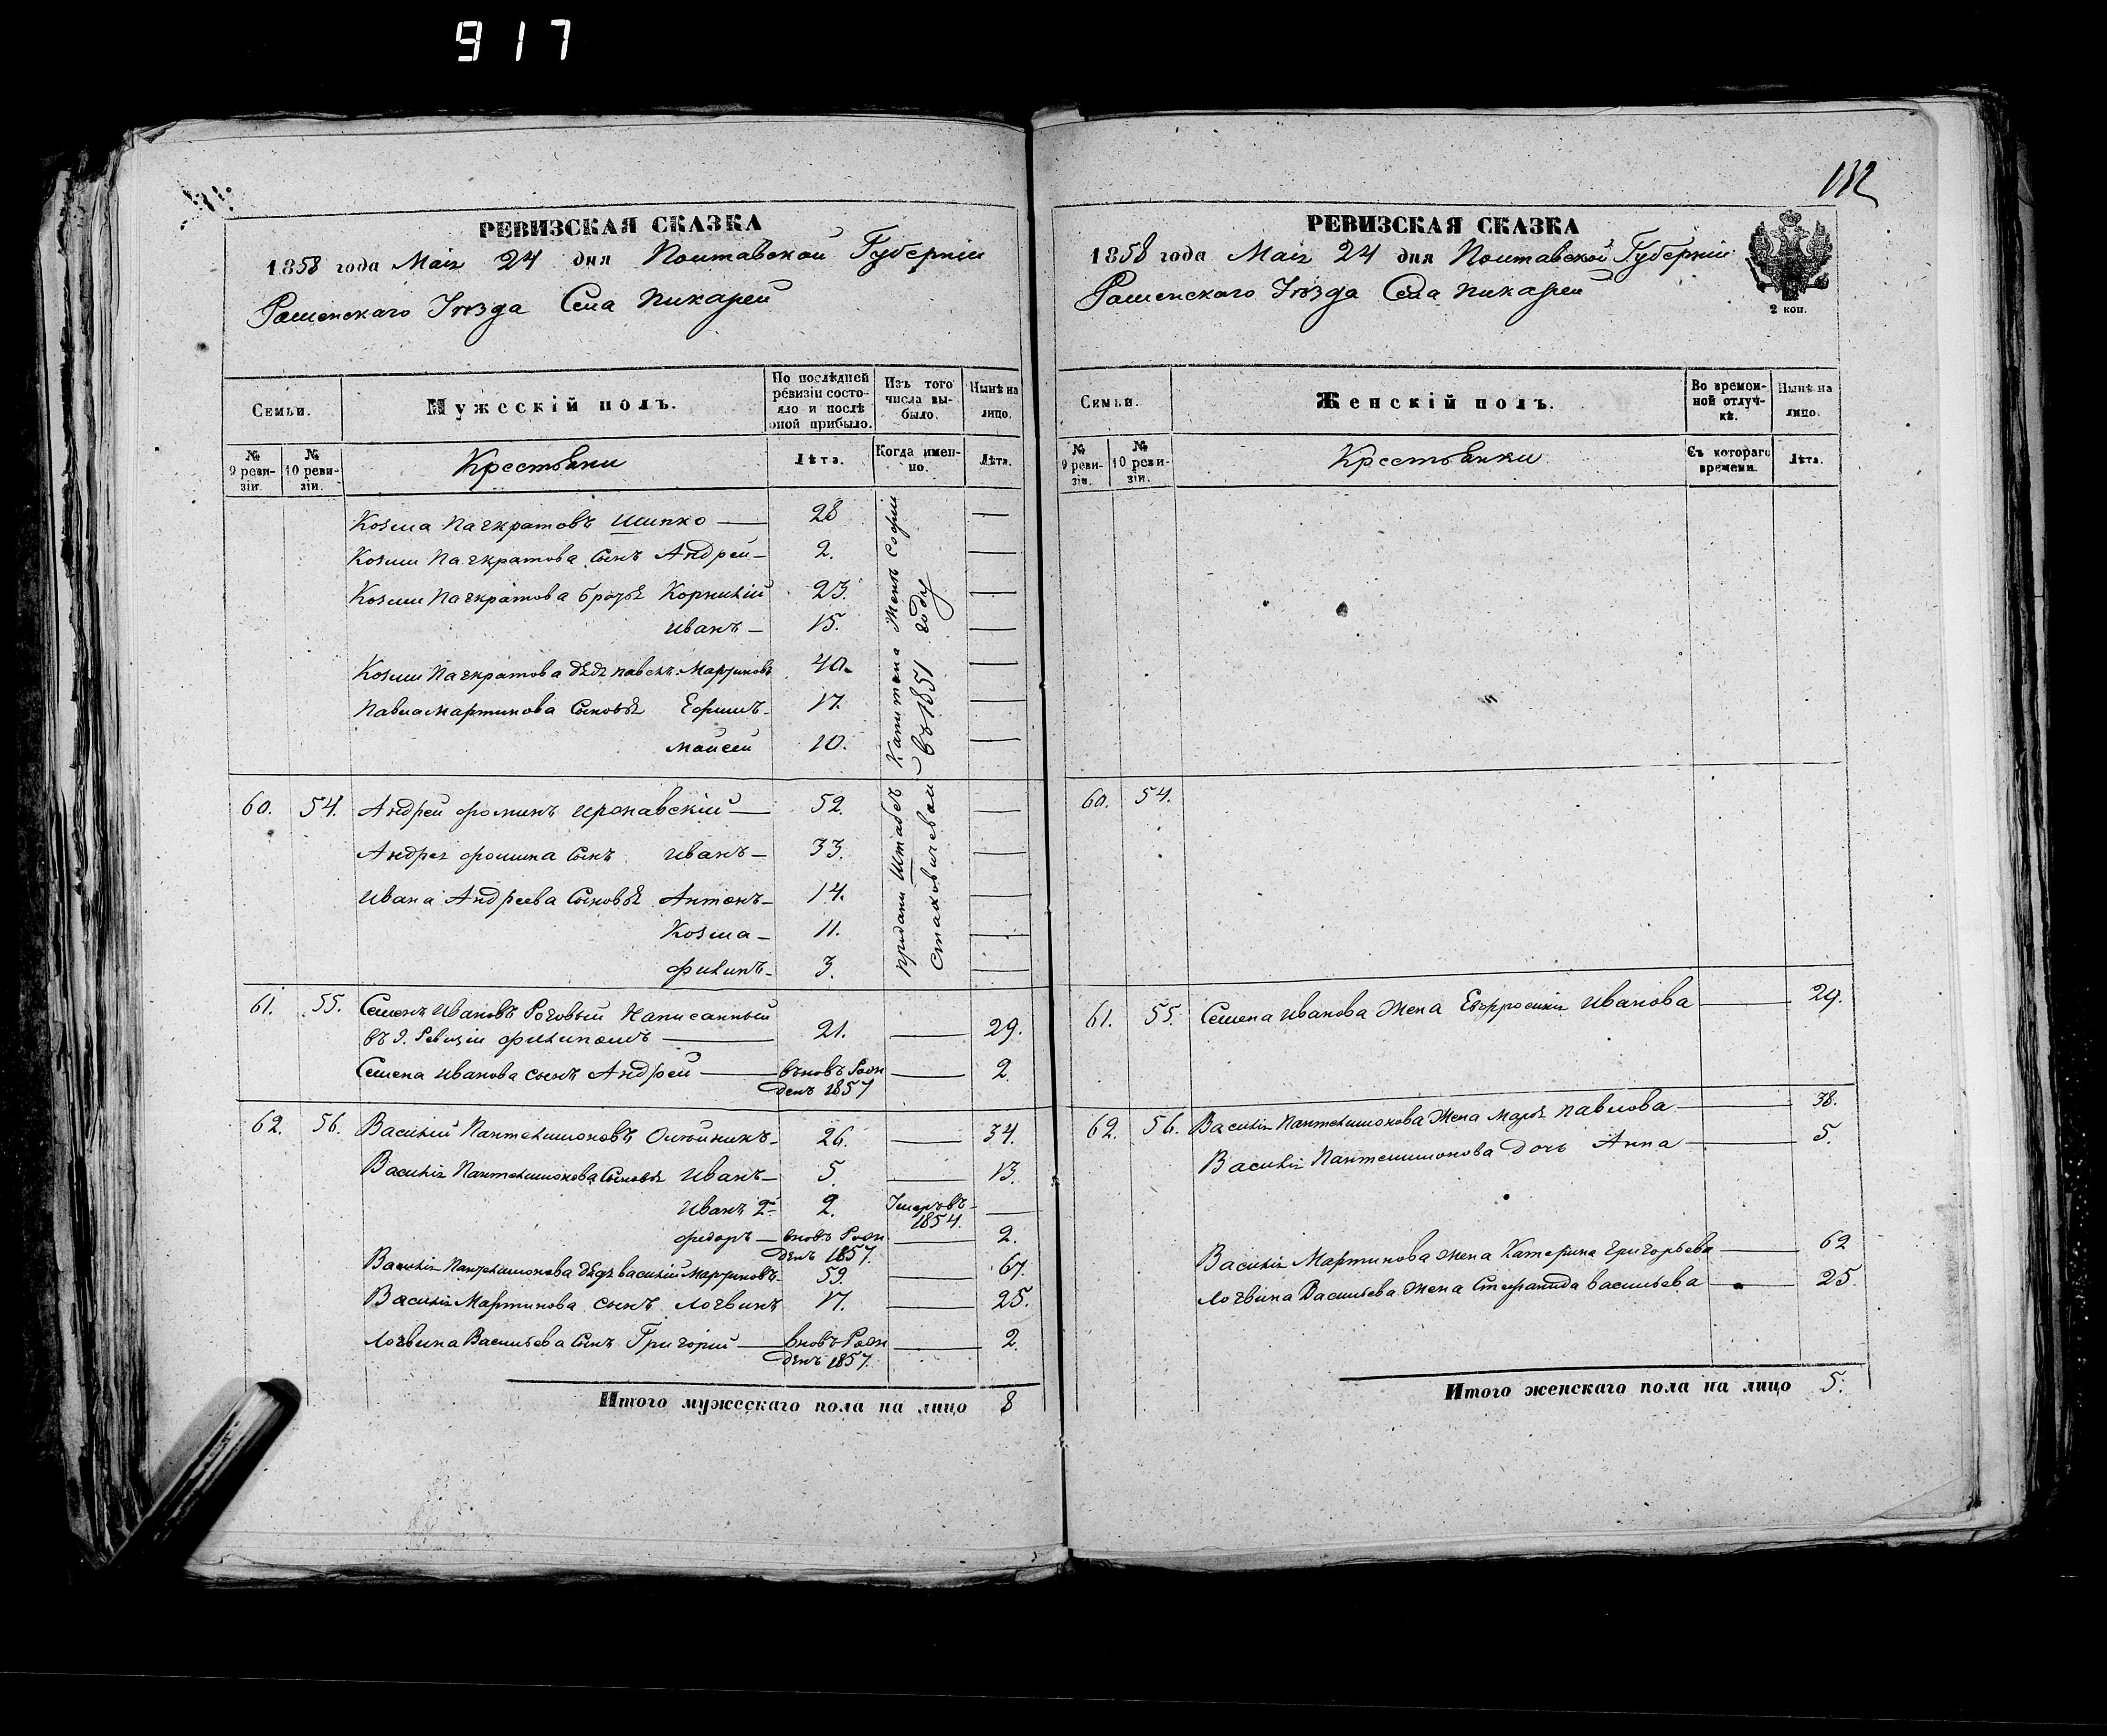 917
РЕВИЗСКАЯ СКАЗКА
1858 года Маія 24 дня Полтавской Губерніи
Роменскаго Уѣзда Села Пикарей
Семьи.
Мужескій полъ.
По послѣдней ревизіи состояло и послѣ оной прибыло.
Изъ того числа выбыло.
Нынѣ на лицо.
№ 9 ревизіи.
№ 10 ревизіи.
Крестьяни
Лѣта.
Когда именно.
Лѣта.
Козма Панкратовъ Шипко — 28 —
Козми Панкратова сынъ Андрей — 2. —
Козми Панкратова братья Корнилій 23. —
Иванъ — 15. —
Козми Панкратова дѣдъ Павелъ Мартиновъ 40. —
Павла Мартинова Сыновья Ефимъ — 17. —
Моисей 10. —
проданы Штабсъ Капитана Женѣ Софіи
Стаховичевой въ 1851 году
60. 54. Андрей Фоминъ — 52. —
Андрея Фомина Сынъ Иванъ — 33. —
Ивана Андреева Сыновья Антонъ — 14. —
Козма — 11. —
Филипъ — 3. —
61. 55. Семенъ Ивановъ Роговый Написанный
въ 9. Ревизіи Филипомъ — 21. — 29.
Семена Иванова сынъ Андрей — вновь Рож
денъ 1857 — 2.
62. 56. Василій Пантелимоновъ Олейникъ — 26. — 34.
Василія Пантелимонова Сыновья Иванъ — 5. — 13.
Иванъ 2й 2. Умеръ въ
1854. —
Федоръ — вновь Рож
денъ 1857. — 2.
Василія Пантелимонова дѣдъ Василій Мартиновъ 59. — 67.
Василія Мартинова сынъ Логвинъ 17. — 25.
Логвина Васильева Сынъ Григорій — вновь Рож
денъ 1857. — 2.
Итого мужескаго пола на лицо 8
132
РЕВИЗСКАЯ СКАЗКА
1858 года Маія 24 дня Полтавской Губерніи
Роменскаго Уѣзда Села Пикарей
2 коп.
Семьи.
Женскій полъ.
Во временной отлучкѣ.
Нынѣ на лицо.
№ 9 ревизіи.
№ 10 ревизіи.
Крестьянки
Съ котораго времени.
Лѣта.
60. 54.
61. 55. Семена Иванова Жена Евфросинія Иванова — 29.
62. 56. Василія Пантелимонова Жена Марья Павлова — 38.
Василія Пантелимонова дочь Анна — 5.
Василія Мартинова жена Катерина Григорьева — 62
Логвина Васильева жена Стефанида Васильева — 25.
Итого женскаго пола на лицо 5.